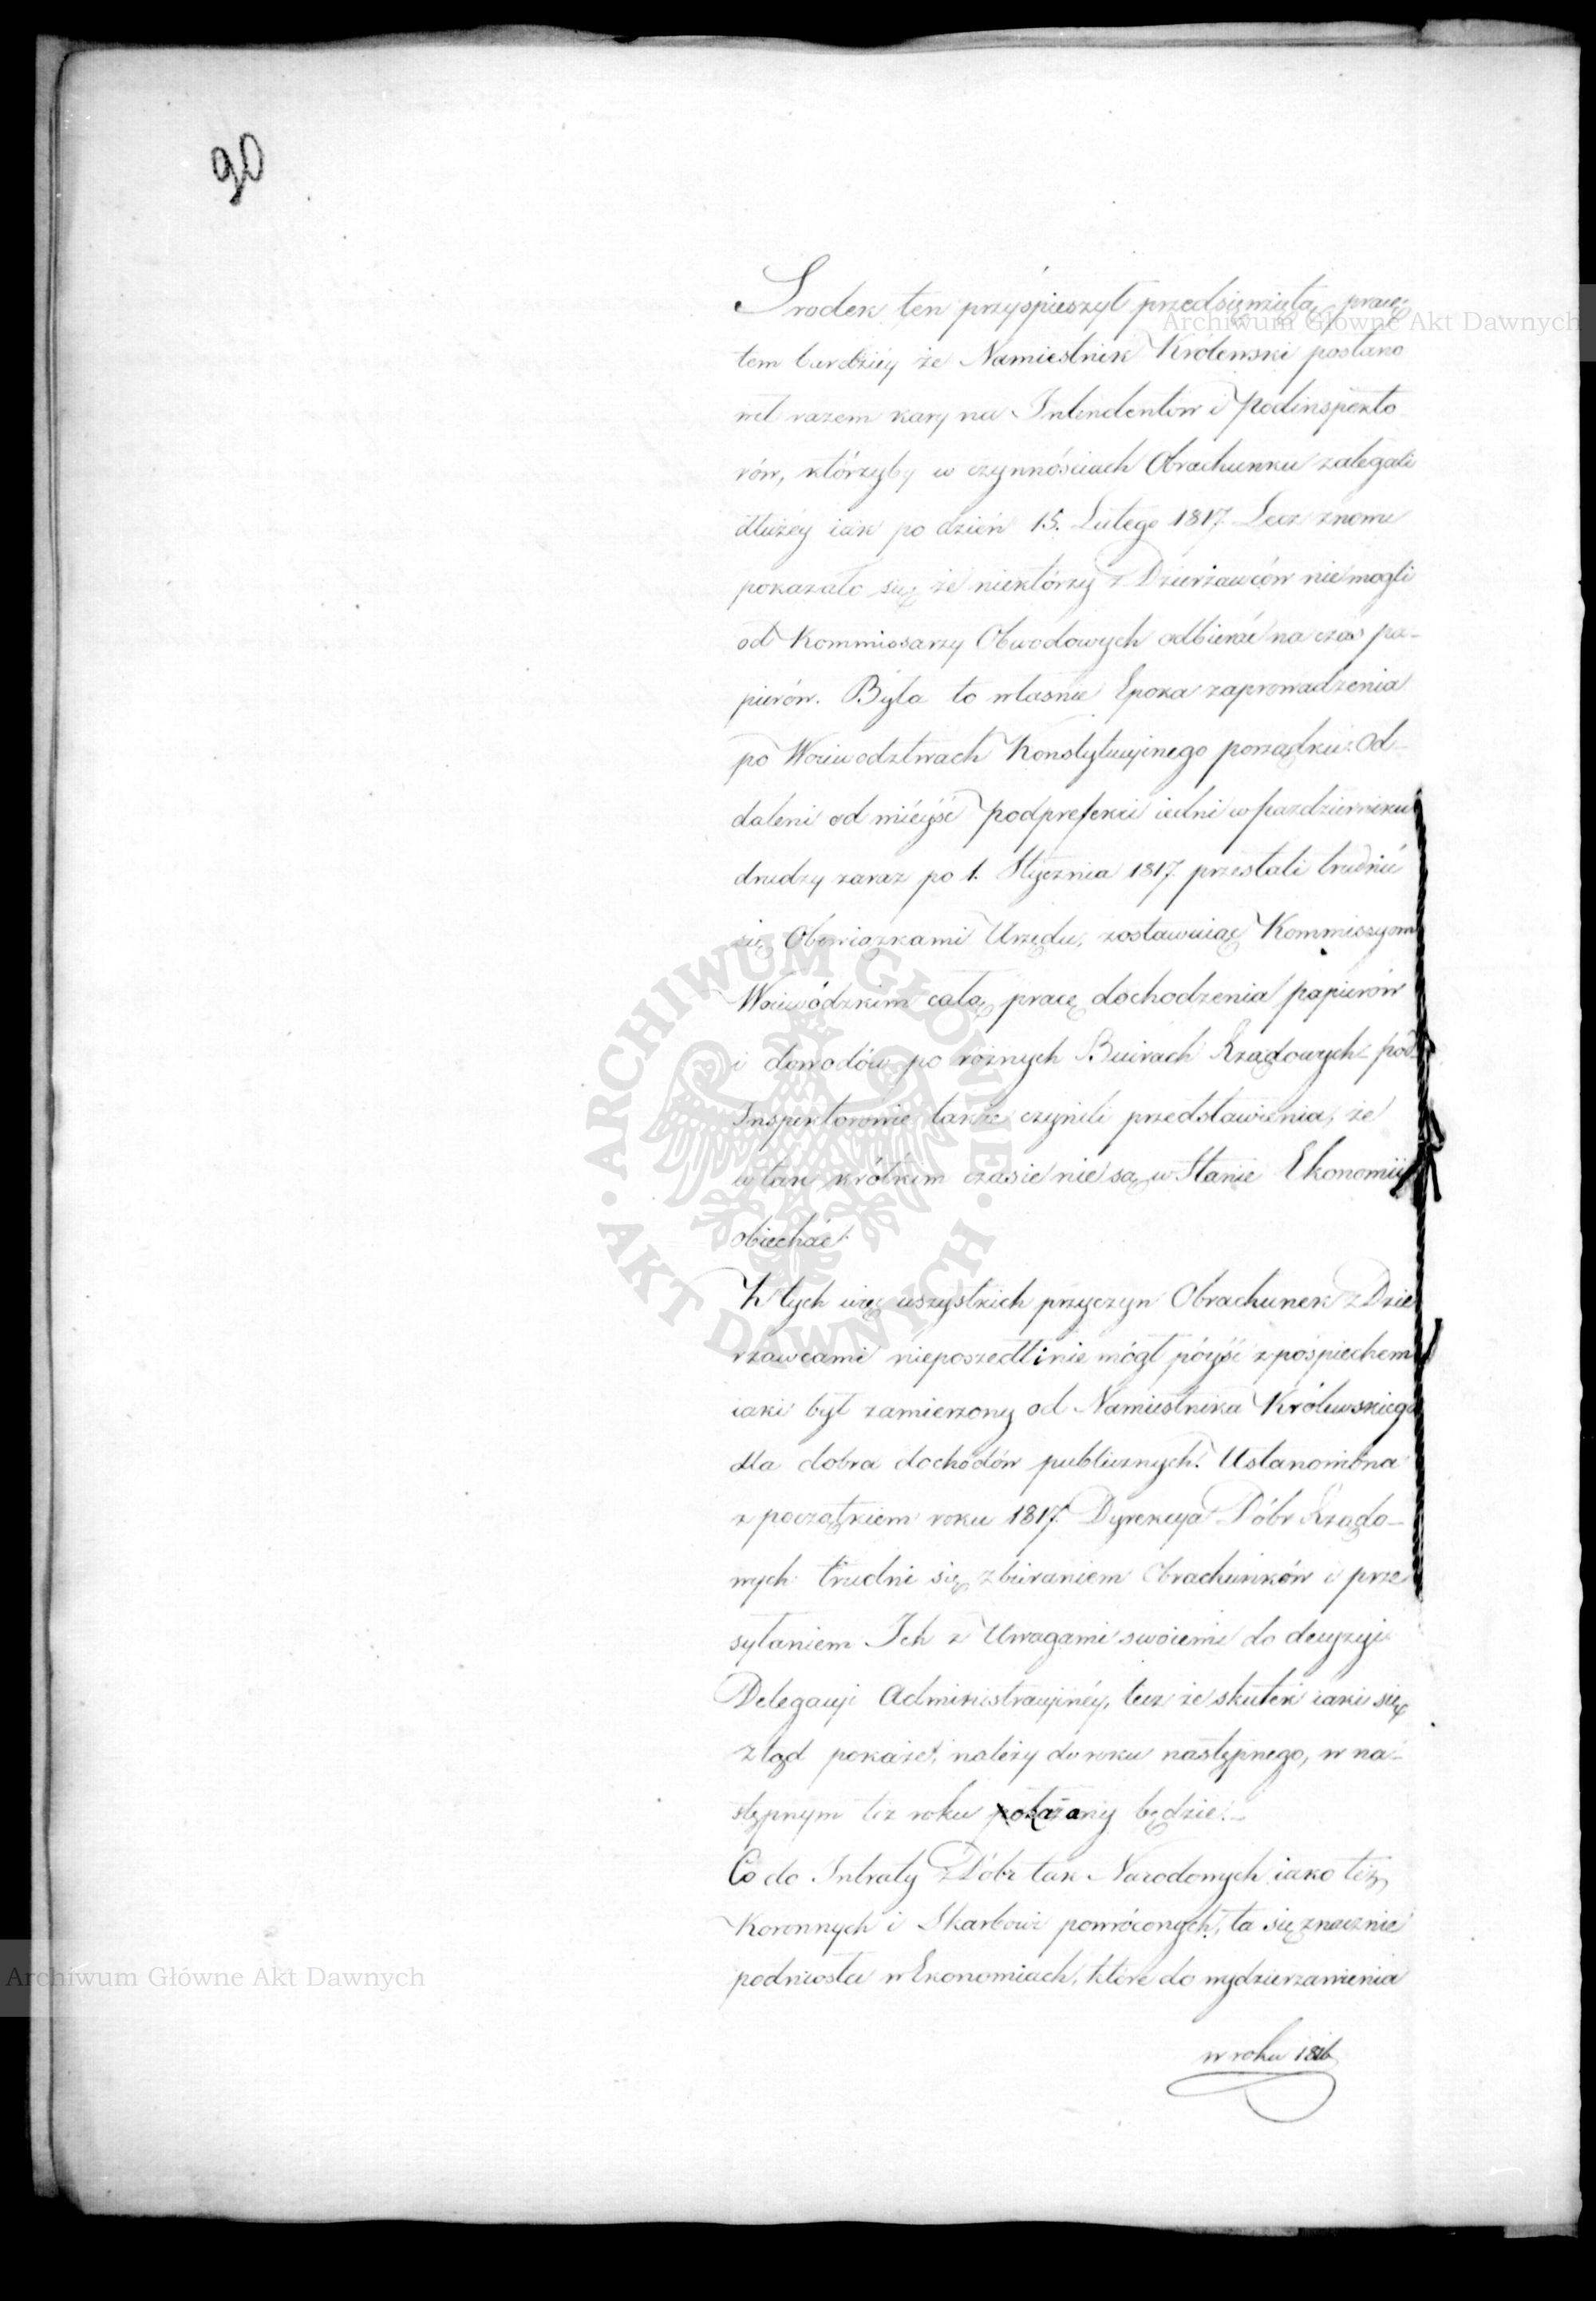 90
Srodek ten przyśpieszył przedsięwziętą pracę
tem bardziéy że Namiestnik Królewski postano
wił razem kary na Intendentów i Podinspekto
rów, którzyby w czynnościach Obrachunku zalegali
dłużéy iak po dzień 15. Lutego 1817. Lecz znowu
pokazało się że niektórzy z Dzierżawców nie mogli
od Kommissarzy Obwodowych odbierać na czas pa-
pierów. Była to własnie Epoka zaprowadzenia
po Woiewodztwach Konstytucyinego porządku: Od-
daleni od mieysc Podprefekci iedni w Pazdzierniku
drudzy zaraz po 1. Stycznia 1817. przestali trudnić
się Obowiązkami Urzędu, zostawuiąc Kommiszyom
Woiewódzkim całą pracę dochodzenia papierów
i dowodów po różnych Biurach Rządowych - Pod
Inspektorowie także czynili przedstawienia, że
w tak krótkim czasie nie są w Stanie Ekonomii
obiechać.
Z tych więc wszystkich przyczyn Obrachunek z Dzie
rzawcami nieposzedł i nie mógł póyść z pośpiechem
iaki był zamierzony od Namiestnika Królewskiego
dla dobra dochodów publicznych. Ustanowiona
z początkiem roku 1817. Dyrekcya Dóbr Rządo-
wych trudni się zbieraniem Obrachunków i prze
syłaniem Ich z Uwagami swoiemi do decyzyi
Delegacyi Administracyinéy, lecz że skutek iaki się
ztąd pokaże, należy do roku następnego, w na-
stępnym też roku pokazany będzie.-
Co do Intraty z Dóbr tak Narodowych iako też
Koronnych i Skarbowi powróconych, ta się znacznie
podniosła w Ekonomiach, które do wydzierzawienia
w roku 1816
Archiwum Główne Akt Dawnych
ARCHIWUM GŁÓWNE · AKT DAWNYCH ·
Archiwum Główne Akt Dawnych